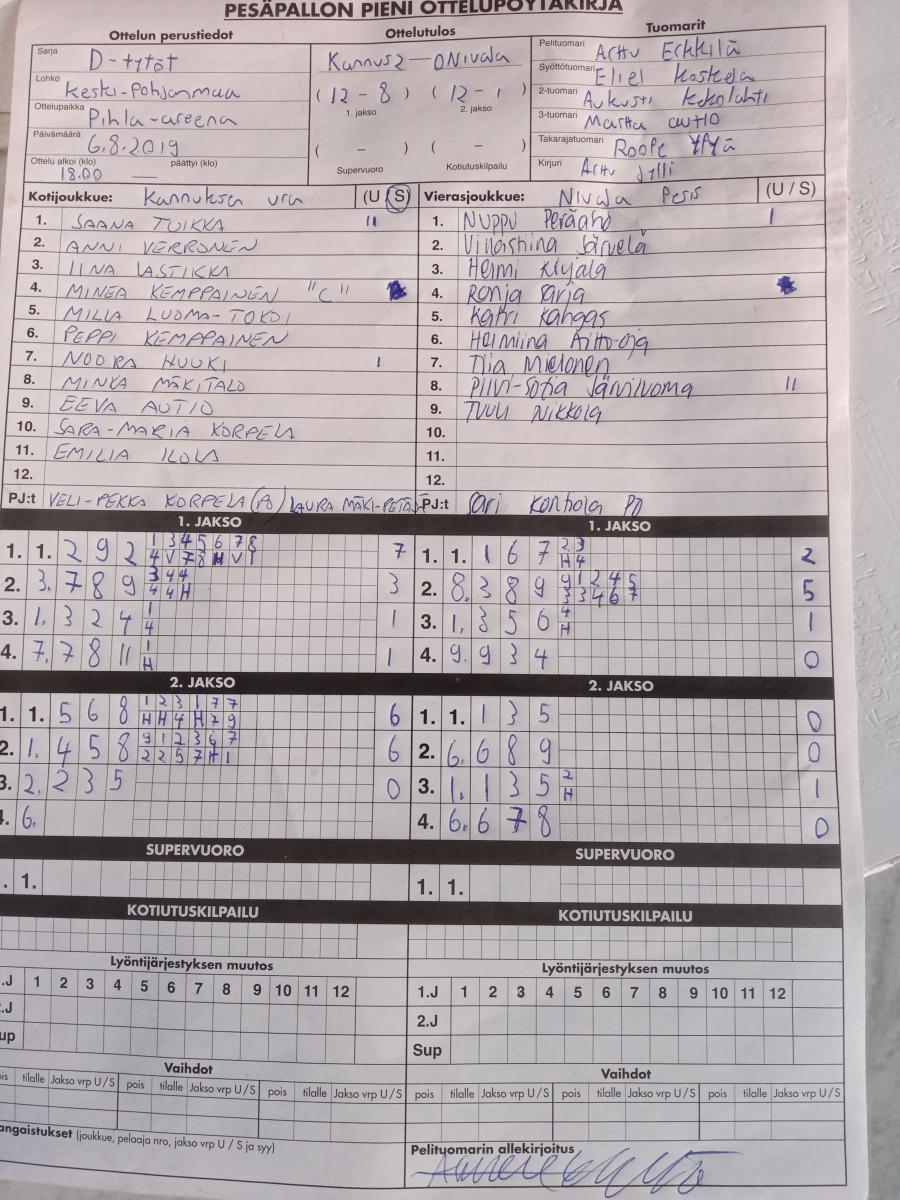 PESÄPALLON PIENI OTTELUPÖYTÄKIRJA
Ottelun perustiedot
Sarja
D-tytöt
Lohko
Keski-Pohjanmaa
Ottelupaikka
Pihla-areena
Päivämäärä
6.8.2019
Ottelu alkoi (klo) päättyi (klo)
18.00 —
Ottelutulos
Kannus 2 – 0 Nivala
(12 - 8) (12 - 1)
1. jakso 2. jakso
( - ) ( - )
Supervuoro Kotiutuskilpailu
Tuomarit
Pelituomari Arttu Erkkilä
Syöttötuomari Eliel Koskela
2-tuomari Aukusti
3-tuomari Martta
Takarajatuomari Roope
Kirjuri Arttu
Kotijoukkue: Kannuksen Ura (U / S)
1. SAANA TUIKKA II
2. ANNI VERRONEN
3. IINA LASTIKKA
4. MINEA KEMPPAINEN "C"
5. MILLA LUOMA-TOKOI
6. PEPPI KEMPPAINEN
7. NOORA HUUKI I
8. MINKA MÄKITALO
9. EEVA AUTIO
10. SARA-MARIA KORPELA
11. EMILIA ILOLA
12.
PJ:t VELI-PEKKA KORPELA (PJ) LAURA
Vierasjoukkue: Nivala Pesis (U / S)
1. Nuppu Peräaho I
2. Järvelä
3. Helmi
4. Ronja Sarja
5. Katri Kangas
6. Helmiina
7. Tiia Mielonen
8. Pilvi-Sofia Järviluoma II
9. Tuuli Nikkola
10.
11.
12.
PJ:t Sari PJ
1. JAKSO
1. 1. 2 9 2 1 3 4 5 6 7 8 7
4 V 7 8 H V 1
2. 3. 7 8 9 3 4 4 3
4 4 H
3. 1. 3 2 4 1 1
4
4. 7. 7 8 11 1 1
H
1. JAKSO
1. 1. 1 6 7 2 3 2
H 4
2. 8. 3 8 9 9 1 2 4 5 5
3 3 4 6 7
3. 1. 3 5 6 4 1
H
4. 9. 9 3 4 0
2. JAKSO
1. 1. 5 6 8 1 2 3 1 7 7 6
H H 4 H 7 9
2. 1. 4 5 8 9 1 2 3 6 7 6
2 2 5 7 H 1
3. 2. 2 3 5 0
4. 6.
2. JAKSO
1. 1. 1 3 5 0
2. 6. 6 8 9 0
3. 1. 1 3 5 2 1
H
4. 6. 6 7 8 0
SUPERVUORO
. 1.
SUPERVUORO
1. 1.
KOTIUTUSKILPAILU
KOTIUTUSKILPAILU
Lyöntijärjestyksen muutos
.J 1 2 3 4 5 6 7 8 9 10 11 12
.J
up
Lyöntijärjestyksen muutos
1.J 1 2 3 4 5 6 7 8 9 10 11 12
2.J
Sup
Vaihdot
is tilalle Jakso vrp U/S pois tilalle Jakso vrp U/S pois tilalle Jakso vrp U/S
Vaihdot
pois tilalle Jakso vrp U/S pois tilalle Jakso vrp U/S pois tilalle Jakso vrp U/S
angaistukset (joukkue, pelaaja nro, jakso vrp U / S ja syy)
Pelituomarin allekirjoitus